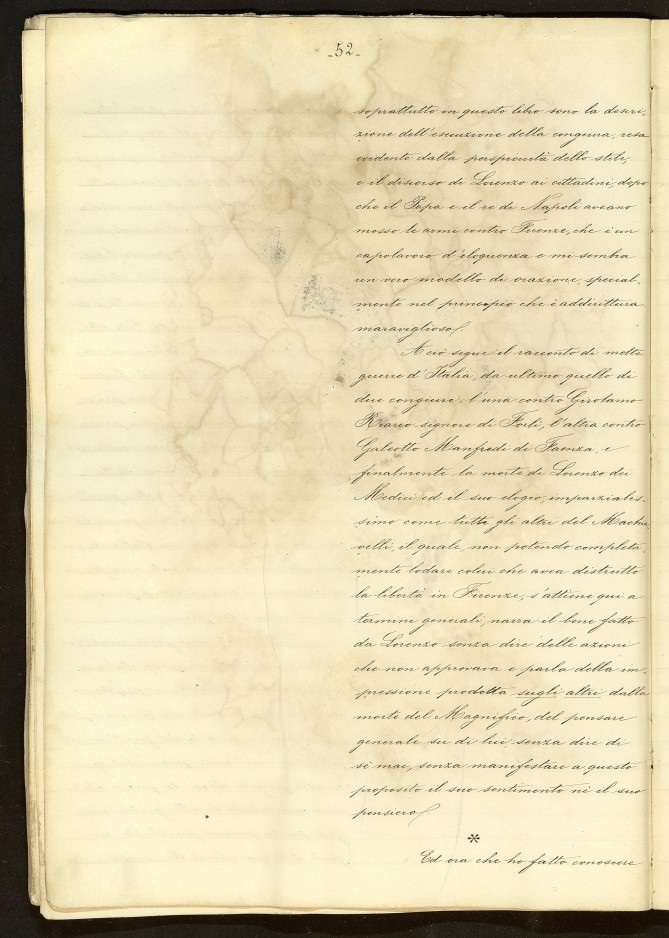 -52-
soprattutto in questo libro sono la descri-
zione dell'esecuzione della congiura, resa
evidente dalla perspicuità dello stile,
e il discorso di Lorenzo ai cittadini, dopo
che il Papa e il re di Napoli aveano
mosso le armi contro Firenze, che è un
capolavoro d'eloquenza e mi sembra
un vero modello di orazione, special-
mente nel principio che è addirittura
maraviglioso.
A ciò segue il racconto di molte
guerre d'Italia, da ultimo quello di
due congiure, l'una contro Girolamo
Riario signore di Forlì, l'altra contro
Galeotto Manfredi di Faenza, e
finalmente la morte di Lorenzo dei
Medici ed il suo elogio, imparzialis-
simo come tutti gli altri del Machia
velli, il quale, non potendo completa-
mente lodare colui che avea distrutto
la libertà in Firenze, s'attiene qui a
termini generali, narra il bene fatto
da Lorenzo senza dire delle azioni
che non approvava e parla della im-
pressione prodotta sugli altri dalla
morte del Magnifico, del pensare
generale su di lui, senza dire di
sè mai, senza manifestare a questo
proposito il suo sentimento nè il suo
pensiero.
*
Ed ora che ho fatto conoscere